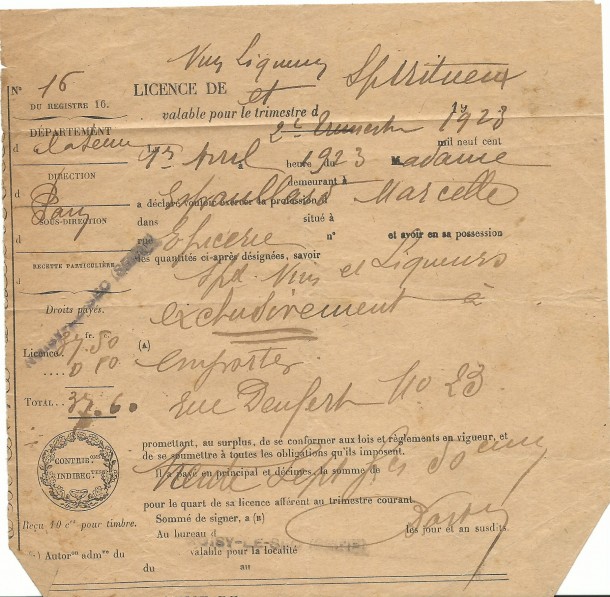 Vins Liqueurs
N° 16
LICENCE DE et Spiritueux
DU REGISTRE 16.
valable pour le trimestre d 2e Trimestre 1923
19
DÉPARTEMENT
d
Le 1er Avril 1923 mil neuf cent
à heure du Madame
DIRECTION
demeurant à
d Paris
a déclaré vouloir exercer la profession d Marcelle
SOUS-DIRECTION
dans situé à
d
rue Epicerie n° et avoir en sa possession
RECETTE PARTICULIÈRE
des quantités ci-après désignées, savoir
d
Spd Vins et Liqueurs
NOISY-LE-SEC (SEINE)
Droits payés.
exclusivement à
fr. c.
Licence. 37.50 (A)
0 10
emporter
TOTAL... 37.60
rue Denfert No 23
promettant, au surplus, de se conformer aux lois et règlements en vigueur, et
de se soumettre à toutes les obligations qu'ils imposent.
CONTRIB.ONS
INDIREC.TES
Il a payé en principal et décimes, la somme de
Trente Sept
pour le quart de sa licence afférent au trimestre courant.
Reçu 10 ces pour timbre.
Sommé de signer, a (B)
les jour et an susdits.
Au bureau d
NOISY-LE-SEC (SEINE)
(*) Autoron admve du
valable pour la localité
du au